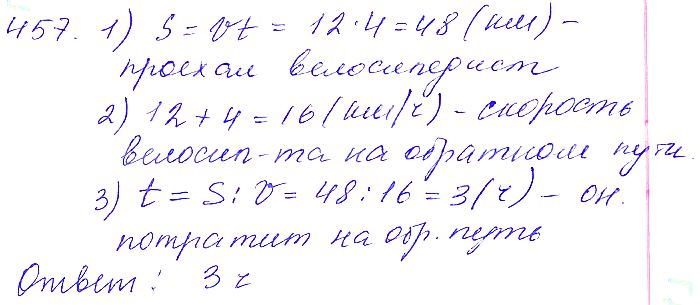 457. 1) S = vt = 12·4 = 48 (км) –
проехал велосипедист
2) 12 + 4 = 16 (км/ч) – скорость
велосип-та на обратном пути.
3) t = S : v = 48 : 16 = 3 (ч) – он.
потратит на обр. путь
Ответ: 3 ч